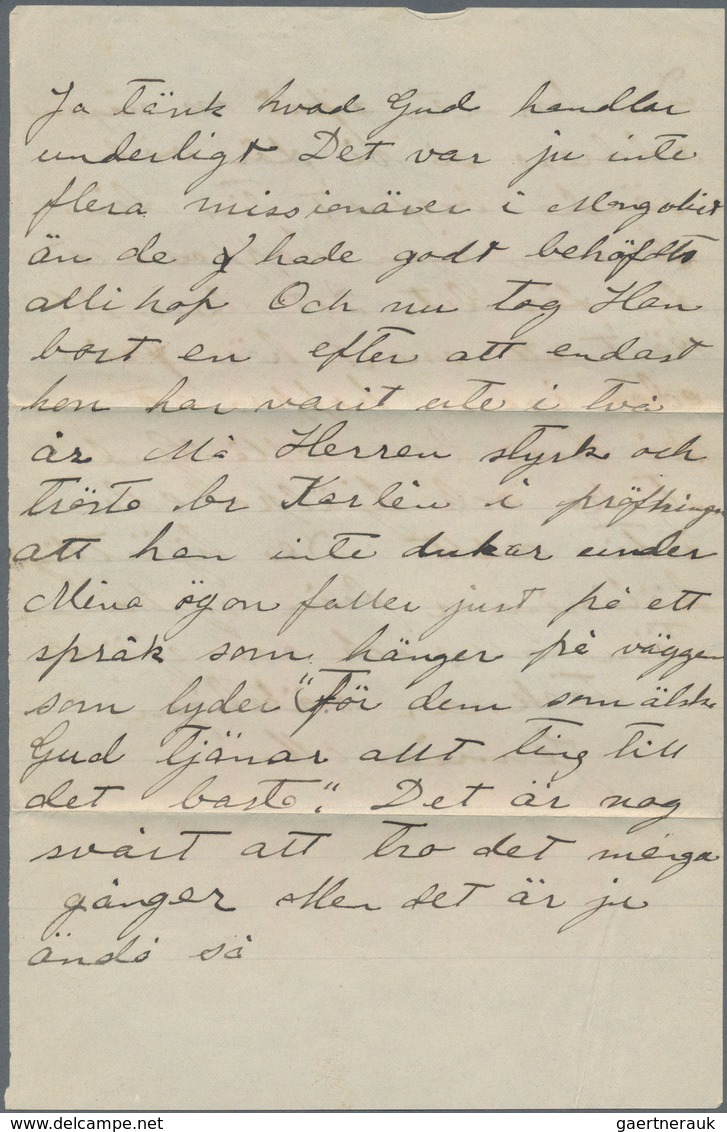 Ja tänk hvad Gud handlar
underligt Det var ju inte
flera missionärer i Mongoliet
än de hade godt behöfdts
allihop Och nu tog Han
bort en efter att endast
hon har varit ute i två
år Må Herren styrk och
trösta br Karlén i pröfningen
att han inte dukar under
Mina ögon faller just på ett
språk som hänger på väggen
som lyder "För dem som älska
Gud tjänar allt ting till
det basta". Det är nog
svårt att tro det många
gånger Men det är ju
ändå så
gaertnerauk